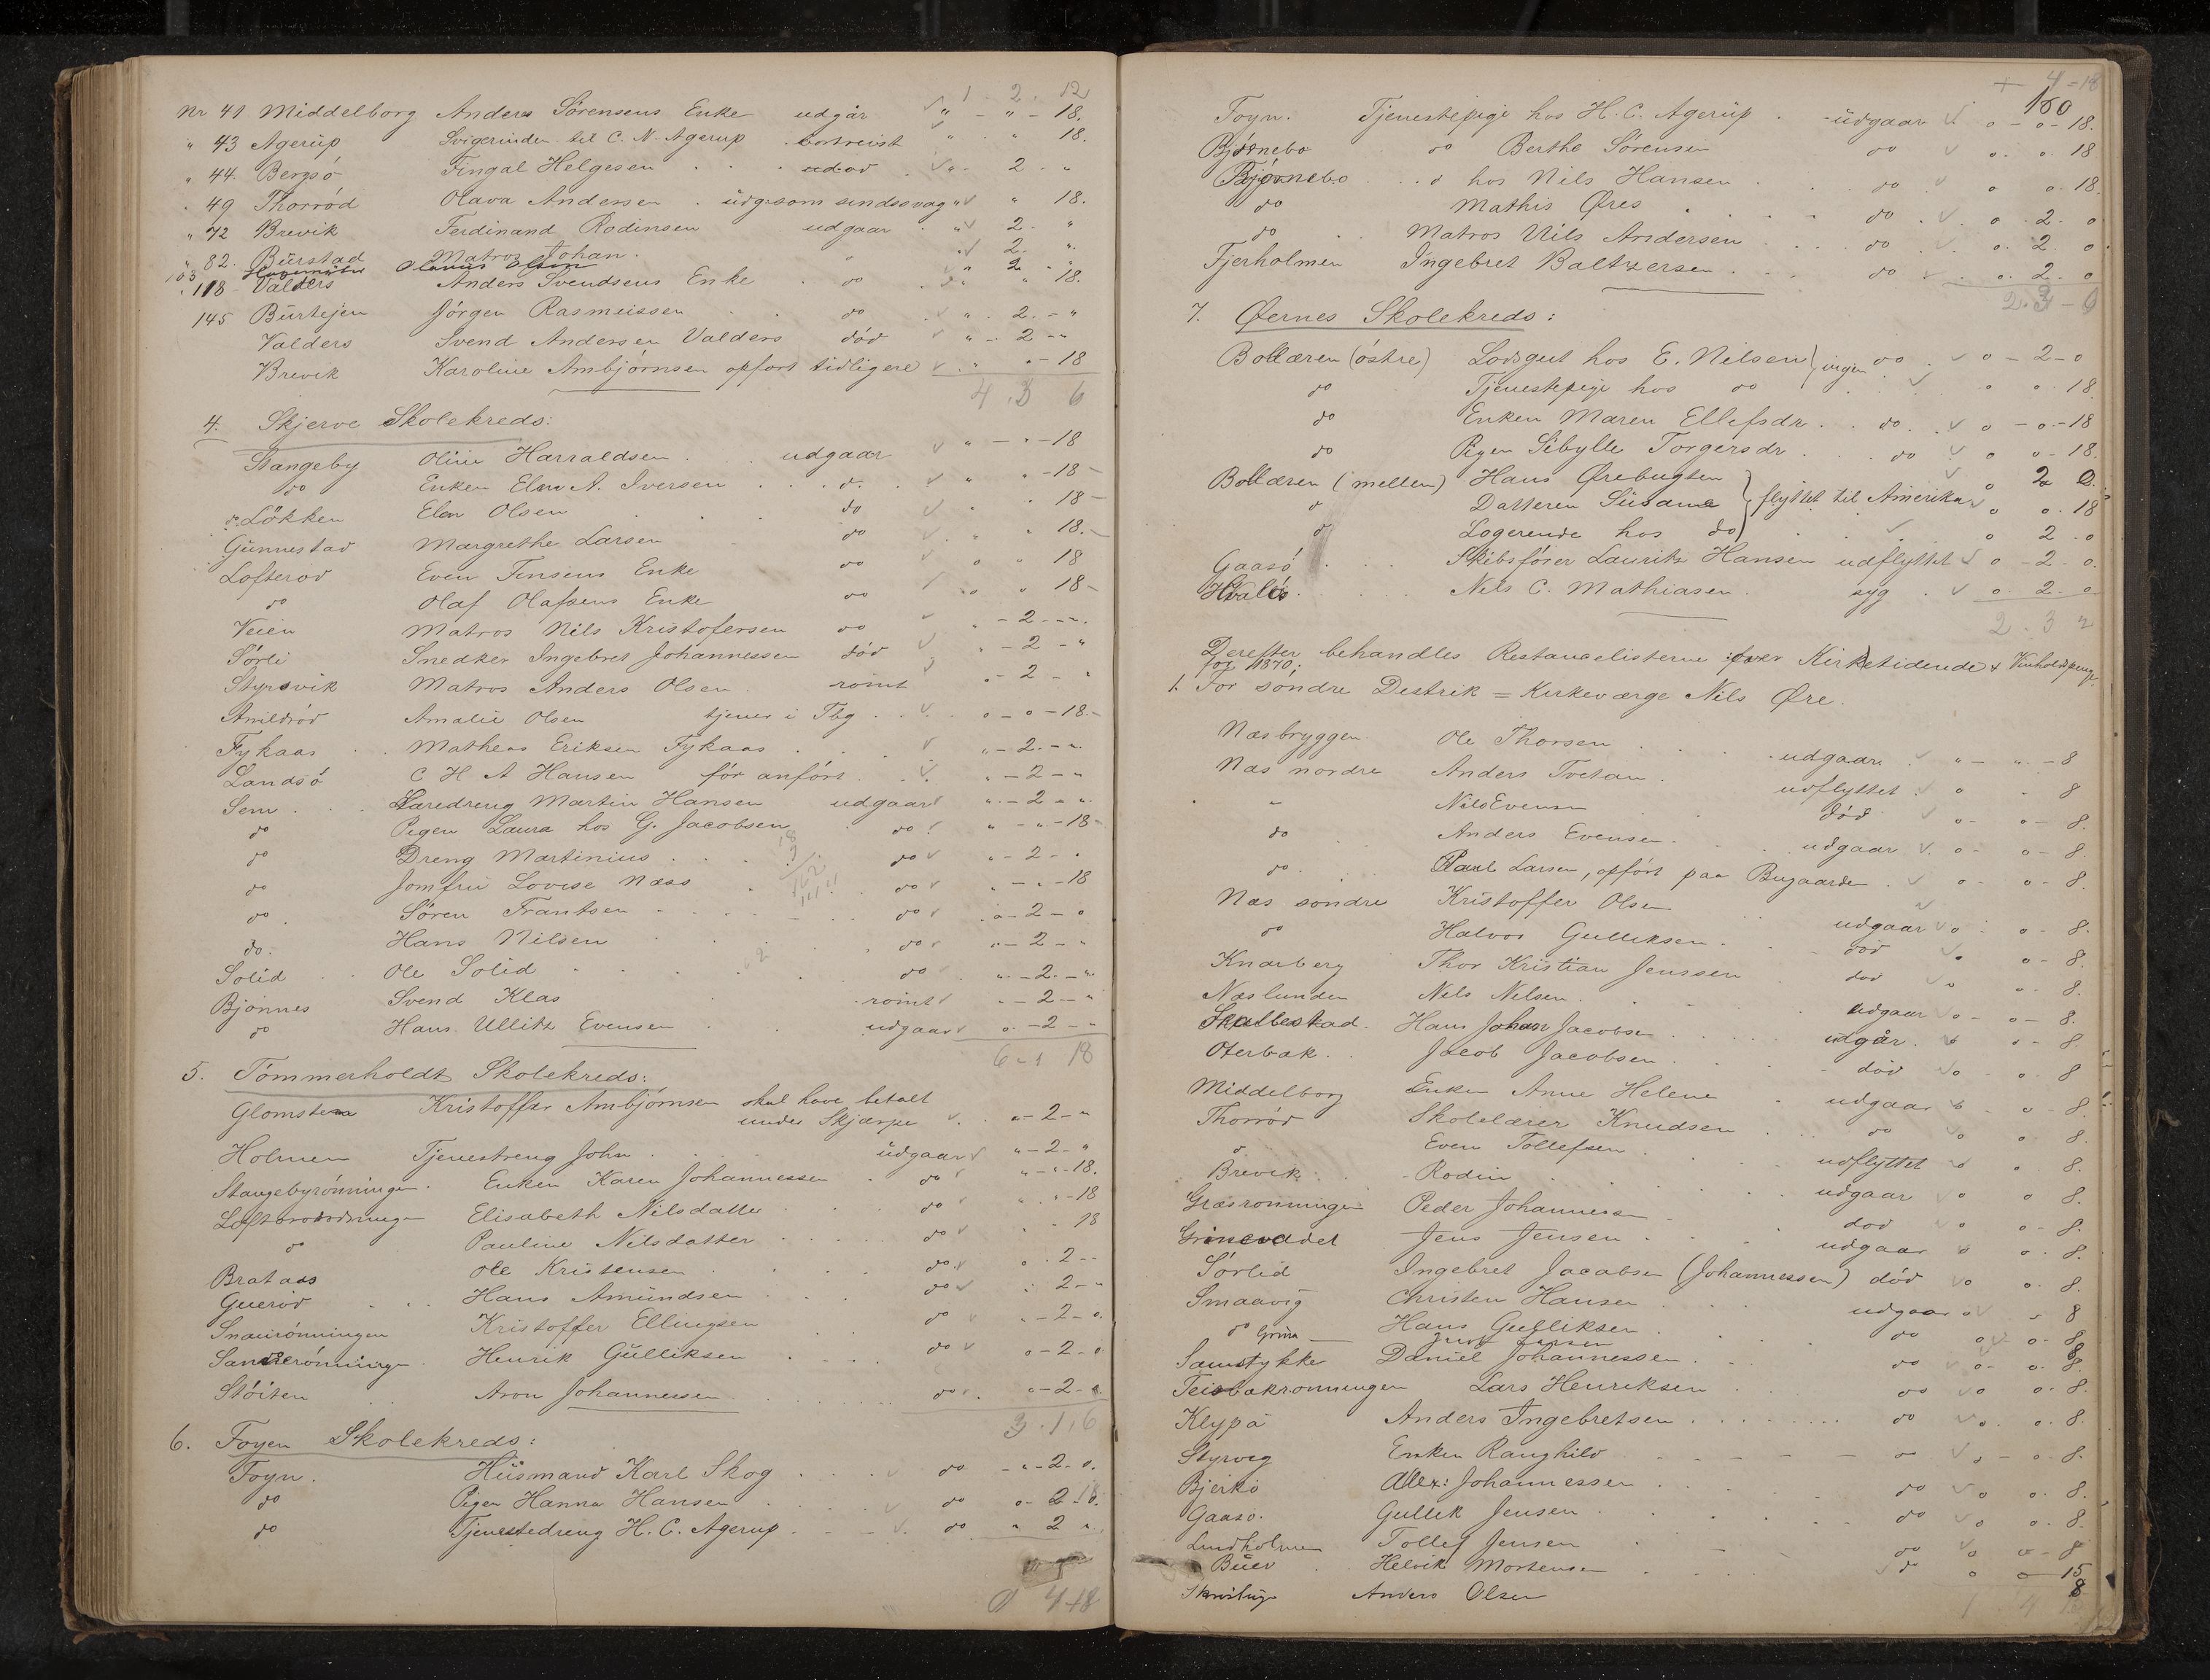 1 - 2 - 12
Nr 41 Middelborg Anders Sörensens Enke udgår " - " - 18.
" 43 Agerup Svigerinden til C. N. Agerup bortreist " " 18.
" 44. Bergsö Fingal Helgesen udød " - 2 - "
" 49 Thorröd Olava Andersen udg. som sindssvag " " 18.
" 72 Brevik Ferdinand Rodinsen udgaar " 2 - "
" 82. Bürstad Matros Johan. " 2. "
103 Olavus Olsen " 2 "
" 118 Valders Anders Svendsens Enke do " " 18.
145 Bürtejen Jörgen Rasmüssen do " 2. - "
Valders Svend Andersen Valders död " - 2 - "
Brevik Karoline Ambjörnsen opfört tidligere " " - 18
4 . 3 6
4. Skjerve Skolekreds:
Stangeby Oline Harraldsen udgaar " - " - 18
do Enken Elen A. Iversen d. " " - 18 -
do Lökken Elen Olsen do " 18 -
Günnestad Margrethe Larsen do " " 18. -
Lofteröd Even Jensens Enke do o " 18
do Olaf Olafsens Enke do " o 18 -
Veien Matros Nils Kristofersen do " - 2 - "
Sörli Snedker Ingebret Johannessen död " - 2 - "
Styrsvik Matros Anders Olsen römt " - 2 - "
Amildröd Amalie Olsen tjener i Tbg o - o - 18. -
Fykaas Matheas Eriksen Fykaas " - 2. - "
Landsö C H A Hansen för anfört " - 2 - "
Sem Læredreng Martin Hansen udgaar " - 2 - "
do Pigen Laura hos G. Jacobsen do " - " - 18 -
do Dreng Martinius do " - 2 - "
do Jomfrü Lovise Næss do " - " - 18
do Sören Frantsen do o - 2 - o
do. Hans Nilsen do " - 2 - "
Solid Ole Solid do " - 2. - "
Bjönnes Svend Klas römt " - 2 - "
do Hans Ullitz Evensen udgaar o. - 2 - "
6 - 1 18
5. Tömmerholdt Skolekreds:
Glomstein Kristoffer Ambjörnsen skal have betalt
under Skjærpe " - 2 - "
Holmen Tjenestreng John udgaar " - 2 - "
Stangebyrönningen Enken Karen Johannessen do " - " - 18.
Elisabeth Nilsdatter do " " - 18
do Pauline Nilsdatter do " " 18
Brataas Ole Kristensen do o - 2 - "
Gueröd Hans Amündsen do " 2 - "
Snaurönningen Kristoffer Ellingsen do " - 2 - o.
Sanderönninge Henrik Gülliksen do o - 2 - o
Stöiten Aron Johannessen do o - 2 -
3 . 1 . 6
6. Foyen Skolekreds:
Foyn. Hüsmand Karl Skog do - " - 2 - o.
do Pigen Hanna Hansen do o - 18.
do Tjenestedreng H. C. Agerup do " 2 "
4 - 18
+ 4 = 18
160
Foyn. Tjenestepige hos H. C. Agerup udgaar o - o - 18.
Björnebo do Berthe Sörensen do o. o. 18
Björnebo d hos Nils Hansen do o o. 18.
do Mathis Øres do o. 2. o
do Matros Nils Andersen do o. 2. o
Fjerholmen Ingebret Baltzersen do o. 2. o
2. 3 - 0
7. Øernes Skolekreds:
Bollæren (östre) Lodsgut hos E. Nilsen ingen do o - 2 - o
do Tjenestepige hos do o o. 18.
do Enken Maren Ellefsdr do o - o - 18
do Pigen Sibylle Torgersdr do o o - 18.
Bollæren (mellem) Hans Ørebugten o 2 0.
d Datteren Süsanne flyttet til Amerika o o. 18
d Logerende hos do o 2 - o
Gaasö Skibsförer Lauritz Hansen udflyttet o - 2 - o.
Hvalö Nils C. Mathiasen syg o. 2. o
2 . 3
Derefter behandles Restancelisterne over Kirketidende &
for 1870;
1. For söndre Destrik = Kirkeværge Nils Øre.
Næsbryggen Ole Thorsen udgaar " - " - 8
Næs nordre Anders Tvetan udflyttet o " 8
" Nils Evensen död o - o - 8.
do Anders Evensen udgaar o - o - 8.
do Paul Larsen, opfört paa Bugaarden o - o - 8.
Næs söndre Kristoffer Olsen
do Halvor Gulliksen udgaar o o - 8.
Knarberg Thor Kristian Jenssen död o o - 8.
Næslunden Nils Nilsen död o o - 8.
Skallestad Hans Johan Jacobsen udgaar o - o - 8.
Oterbæk Jacob Jacobsen udgår o o - 8
Middelborg Enken Anne Helene död o o. 8
Thorröd Skolelærer Knudsen udgaar o o - 8.
d Even Tollefsen do o o. 8.
Brevik Rodin udflyttet o o. 8.
Græsrönningen Peder Johannessen udgaar o o 8.
Jens Jensen död o o - 8.
Sörlid Ingebret Jacobsen (Johannessen) död o o. 8.
Smaavig Christen Hansen udgaar o 8
do Grina Hans Gulliksen do o o - 8
Samstykke Daniel Johannessen do o - o. 8.
Teisbækrönningen Lars Henriksen do o o - 8.
Klypa Anders Ingebretsen do o. o. 8.
Styrvig Enken Ranghild o - o. 8.
Bjerkö Allex: Johannessen do o o. 8.
Gaasö. Gullik Jensen do o o. 8.
Lindholmen Tollef Jensen do o o - 8
Büev Helvik Mortensen d o o - 15
Anders Olsen 8